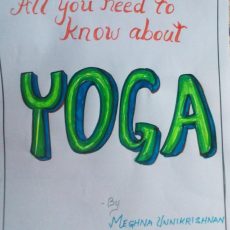 All you need to
know about
YOGA
-By
MEGHNA UNNIKRISHNAN